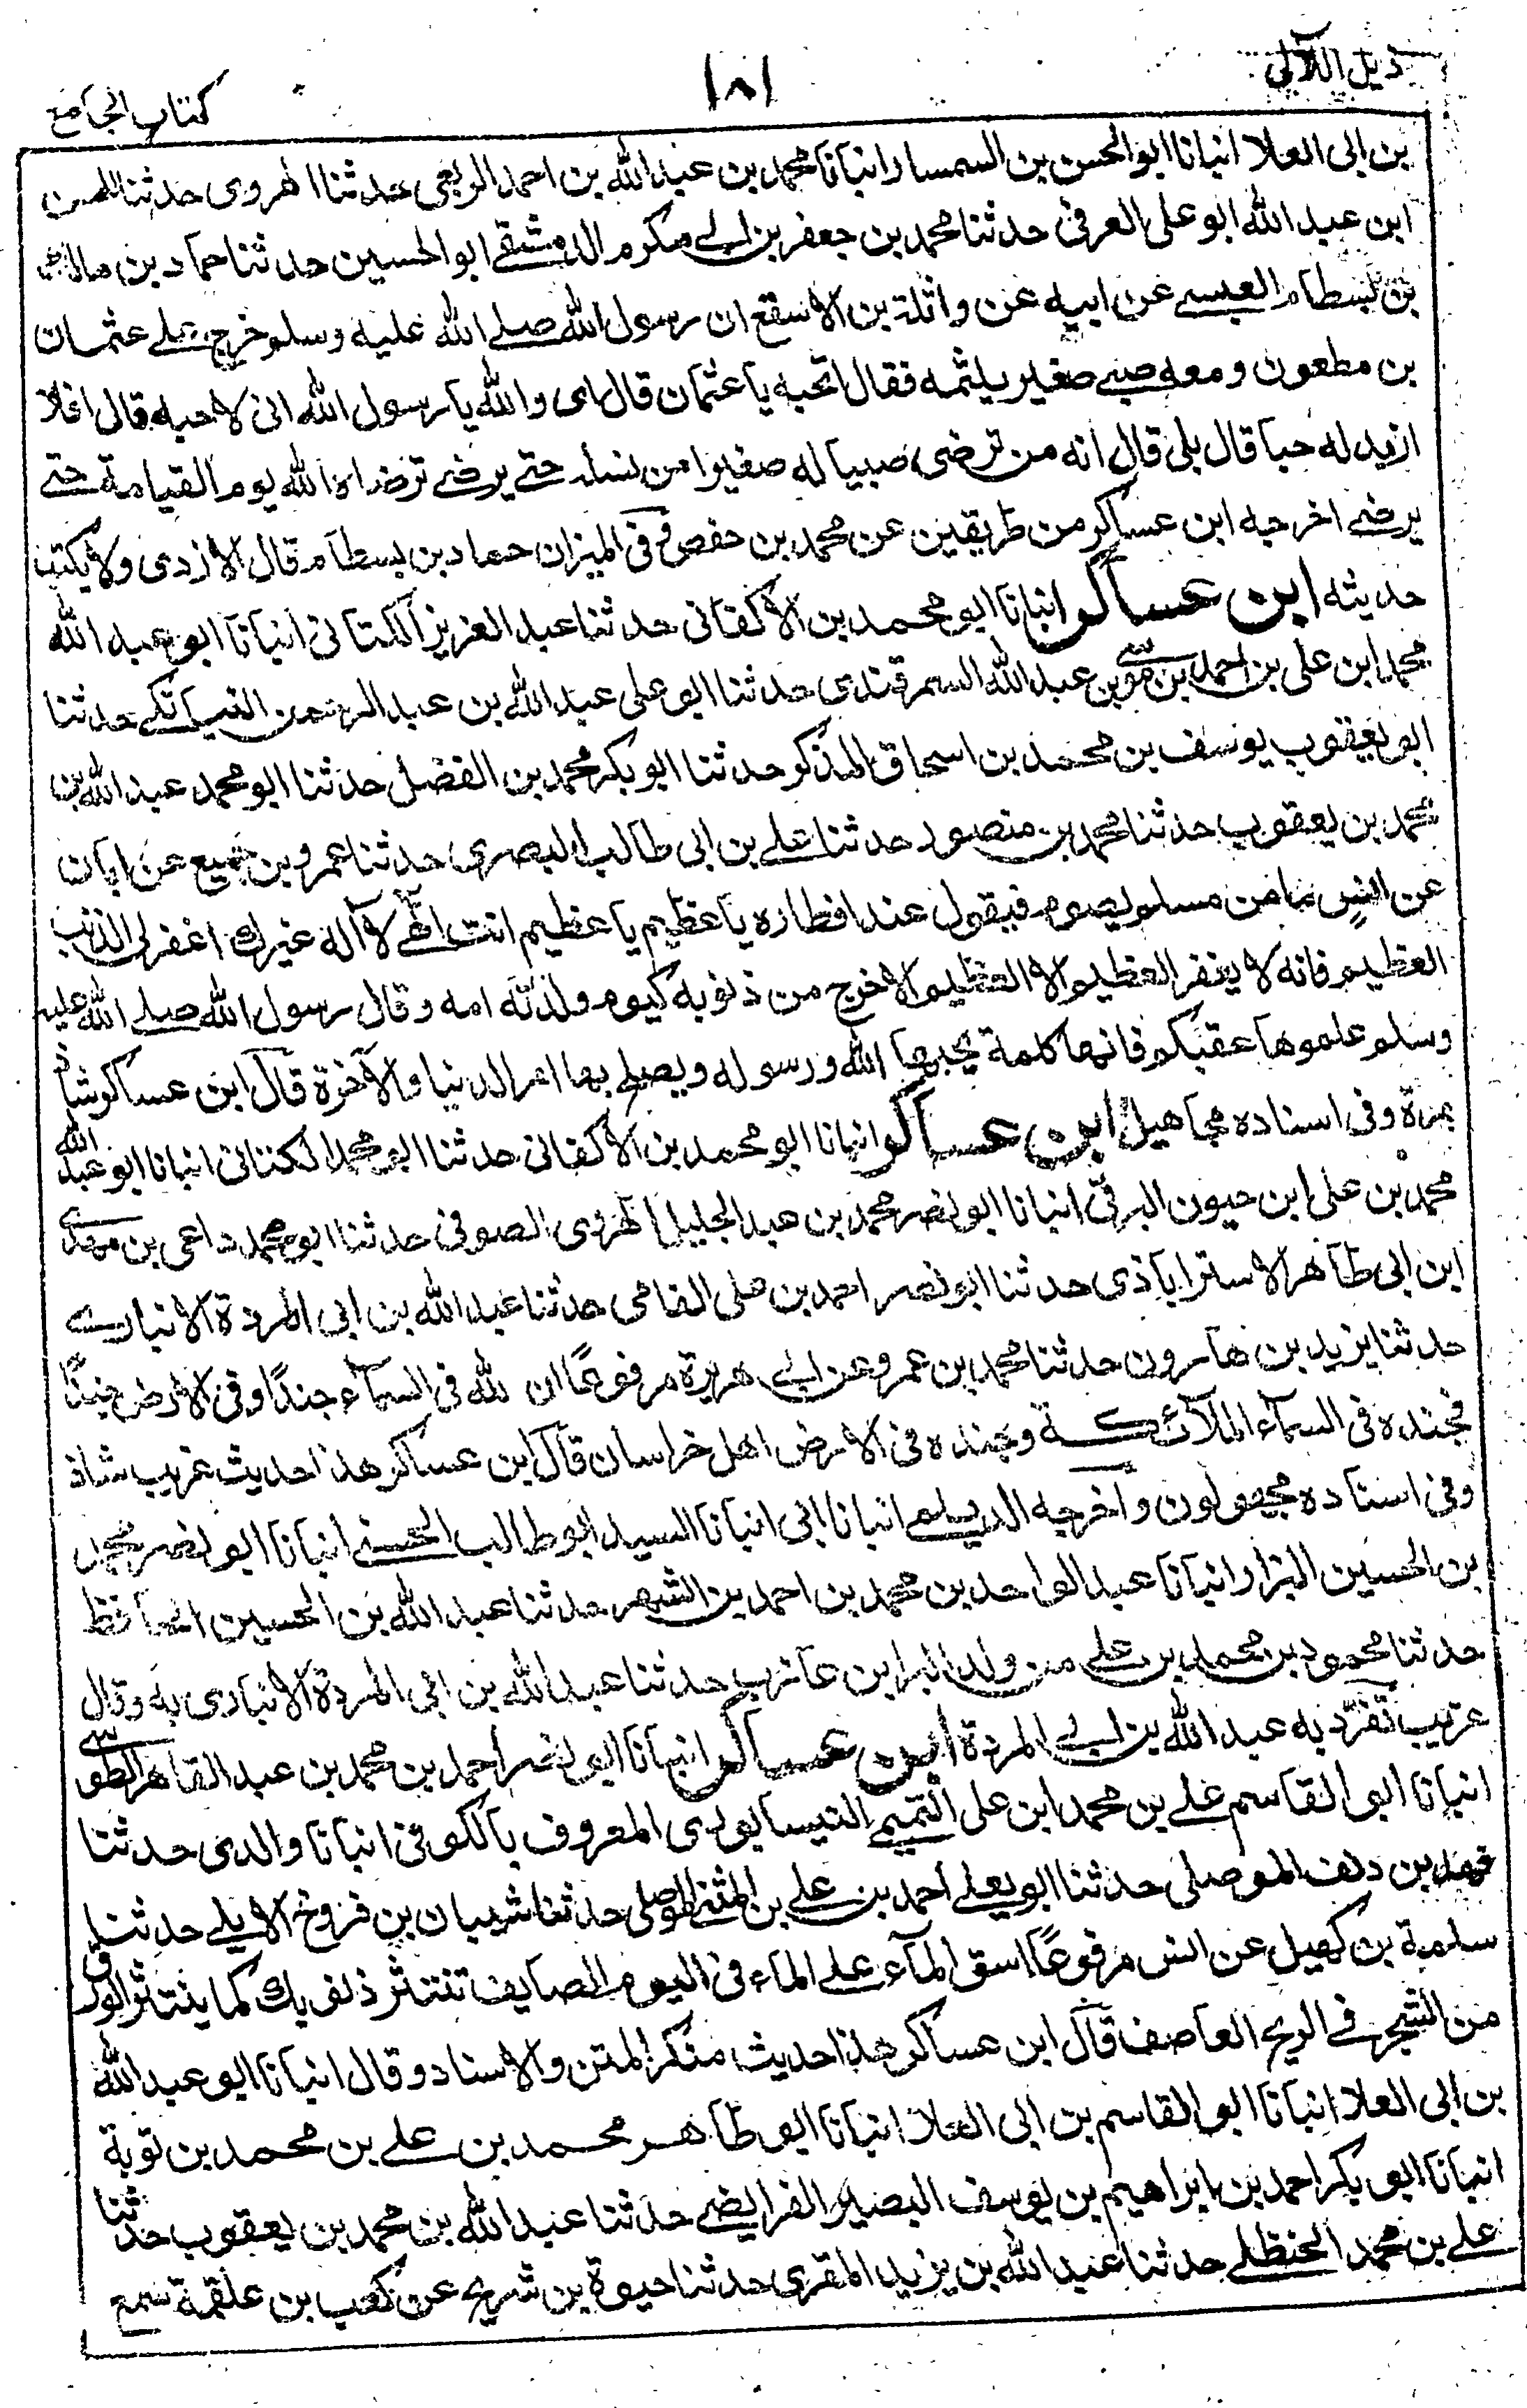 ذيل اللآلي
١٨١
كتاب الجامع
بن ابى العلا انبانا ابو الحسن بن السمسار انبانا محمد بن عبد الله بن احمد الربعى حدثنا الهروى حدثنا الحسن
ابن عبد الله ابو على العرفى حدثنا محمد بن جعفر بن ابى مكرم الدمشقے ابو الحسين حدثنا حماد بن مالك
بن بسطام العبسے عن ابيه عن واثلة بن الاسقع ان رسول الله صلے الله عليه وسلم خرج علے عثمان
بن مطعون ومعه صبے صغير يلثمه فقال اتحبه يا عثمان قال اى والله يا رسول الله انى لاحبه قال افلا
ازيد له حبا قال بلى قال انه من ترضى صبيا له صغيرا من نسله حتے يرضے ترضاه الله يوم القيامة حتے
يرضے اخرجه ابن عساكر من طريقين عن محمد بن حفص وفى الميزان حماد بن بسطام قال الازدى ولا يكتب
حديثه ابن عساكر انبانا ابو محمد بن الاكفانى حدثنا عبد العزيز الكتانى انبانا ابو عبد الله
محمد ابن على بن احمد بن موسے بن عبد الله السمرقندى حدثنا ابو على عبد الله بن عبد الرحمن حدثنا
ابو يعقوب يوسف بن محمد بن اسحاق المذكر حدثنا ابو بكر محمد بن الفضل حدثنا ابو محمد عبد الله بن
محمد بن يعقوب حدثنا محمد بن منصور حدثنا علے بن ابى طالب البصرى حدثنا عمرو بن جميع عن ابان
عن انس ما من مسلم يصوم فيقول عند افطاره يا عظيم يا عظيم انت الٰهے لا آله غيرك اغفر لى الذنب
العظيم فانه لا يغفر العظيم الا العظيم الا خرج من ذنوبه كيوم ولدته امه وقال رسول الله صلے الله عليه
وسلم علموها عقبكم فانها كلمة يحبها الله ورسوله ويصلح بها امر الدنيا والآخرة قال ابن عساكر شاذ
بمرة وفى اسناده مجاهيل ابن عساكر انبانا ابو محمد بن الاكفانى حدثنا ابو محمد الكتانى انبانا ابو عبد الله
محمد بن على ابن حيون البرقى انبانا ابو نصر محمد بن عبد الجليل الهروى الصوفى حدثنا ابو محمد داعى بن مهدى
ابن ابى طاهر الاستراباذى حدثنا ابو نصر احمد بن على الفامى حدثنا عبد الله بن ابى المردة الانبارے
حدثنا يزيد بن هارون حدثنا محمد بن عمرو عن ابى هريرة مرفوعًا ان لله فى السماء جندًا وفى الارض جندًا
فجنده فى السمآء الملآئكة وجنده فى الارض اهل خراسان قال ابن عساكر هذا حديث غريب شاذ
وفى اسناده مجهولون واخرجه الديلمے انبانا ابى انبانا السيد ابو طالب الحسنے انبانا ابو نصر محمد
بن الحسين البزار انبانا عبد الواحد بن محمد بن احمد بن الشهر حدثنا عبد الله بن الحسين الحافظ
حدثنا محمود بن محمد بن علے من ولد البرا بن عازب حدثنا عبد الله بن ابى المردة الانبارى به وقال
غريب تفرد به عبد الله بن ابى المردة ابن عساكر انبانا ابو نصر احمد بن محمد بن عبد القاهر الطوسے
انبانا ابى القاسم علے بن محمد ابن على التميمے النيسابورى المعروف بالكوفى انبانا والدى حدثنا
فهد بن دلف الموصلى حدثنا ابو يعلے احمد بن علے بن المثنے الموصلى حدثنا شيبان بن فروخ الايلے حدثنا
سلمة بن كهيل عن انس مرفوعًا اسق المآء علے الماء فى اليوم الصايف تنتثر ذنوبك كما ينتثر الورق
من الشجر فے الريح العاصف قال ابن عساكر هذا حديث منكر المتن والاسناد وقال انبانا ابو عبد الله
بن ابى العلا انبانا ابو القاسم بن ابى العلا انبانا ابو طاهر محمد بن علے بن محمد بن توبة
انبانا ابو بكر احمد بن ابراهيم بن يوسف البصير الفرايضے حدثنا عبد الله بن محمد بن يعقوب حدثنا
علے بن محمد الحنظلے حدثنا عبد الله بن يزيد المقرى حدثنا حيوة بن شريح عن كعب بن علقمة سمع